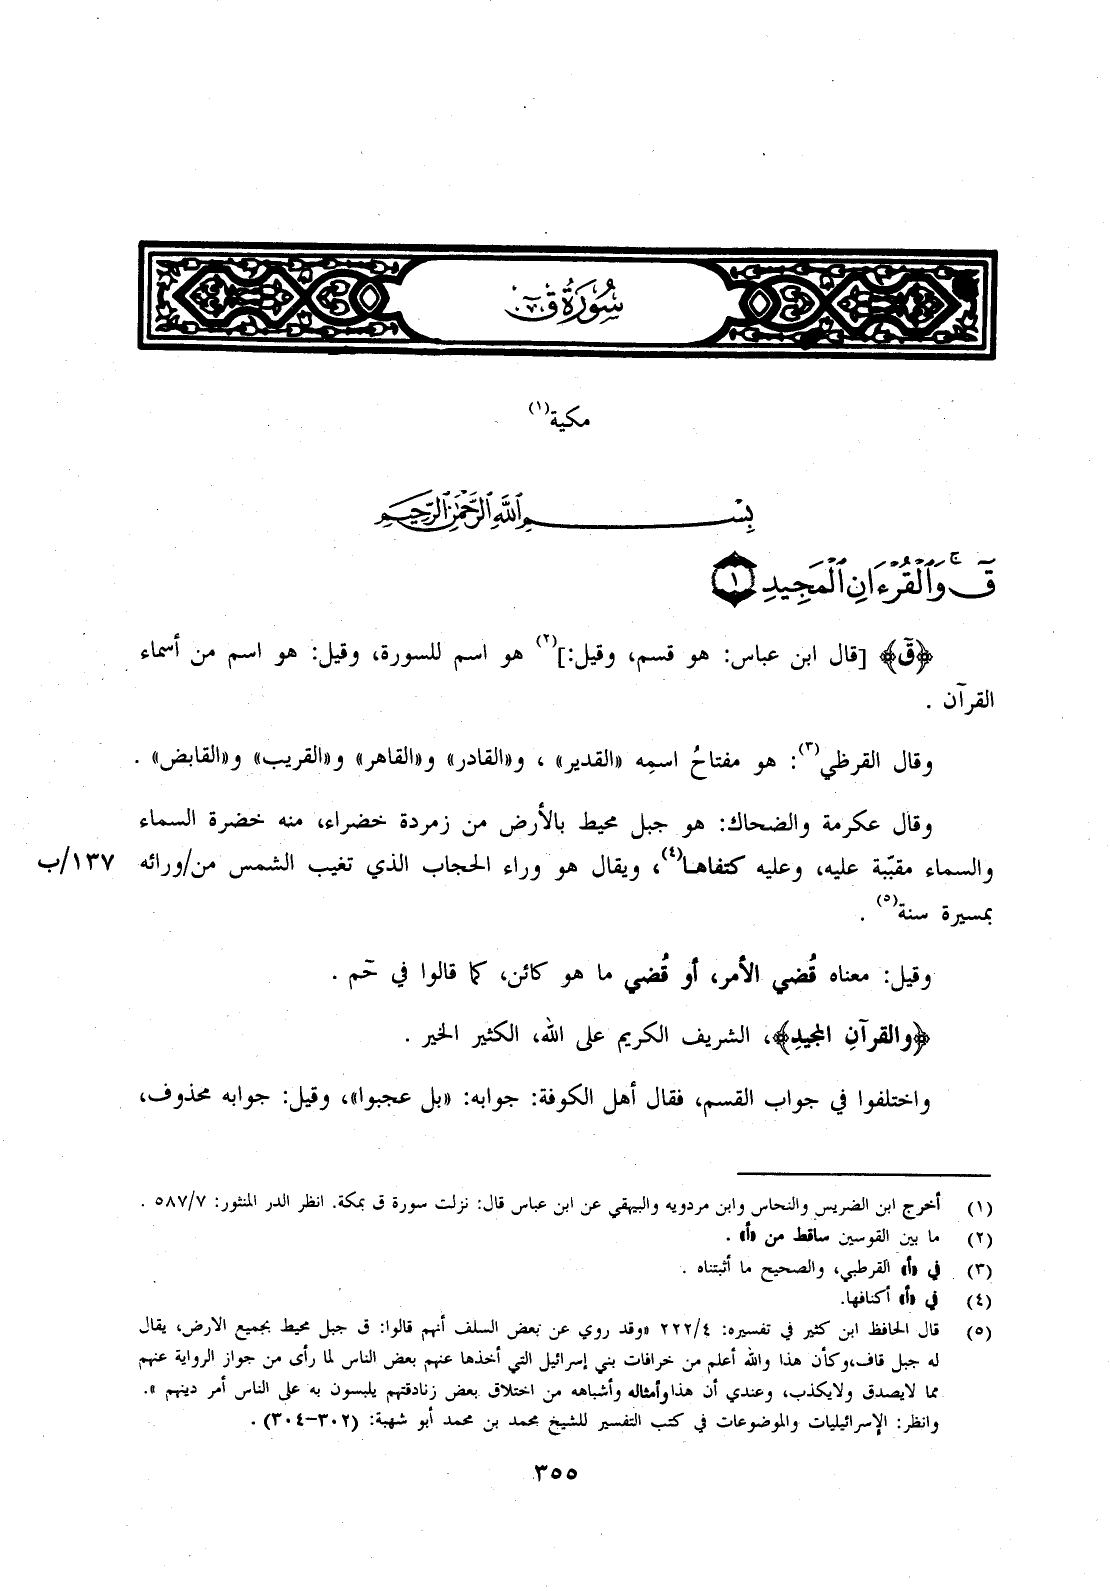 سُورَةُ قٓ
مكية(١)
بِسْمِ ٱللَّهِ ٱلرَّحْمَٰنِ ٱلرَّحِيمِ
قٓۚ وَٱلْقُرْءَانِ ٱلْمَجِيدِ ١
﴿قۤ﴾ [قال ابن عباس: هو قسم، وقيل:](٢) هو اسم للسورة، وقيل: هو اسم من أسماء
القرآن .
وقال القرظي(٣): هو مفتاحُ اسمِه «القدير» ، و«القادر» و«القاهر» و«القريب» و«القابض» .
وقال عكرمة والضحاك: هو جبل محيط بالأرض من زمردة خضراء، منه خضرة السماء
والسماء مقبّبة عليه، وعليه كتفاهـا(٤)، ويقال هو وراء الحجاب الذي تغيب الشمس من/ورائه ١٣٧/ب
بمسيرة سنة(٥) .
وقيل: معناه قُضي الأمر، أو قُضي ما هو كائن، كما قالوا في حۤم .
﴿والقرآنِ المجيدِ﴾، الشريف الكريم على الله، الكثير الخير .
واختلفوا في جواب القسم، فقال أهل الكوفة: جوابه: «بل عجبوا»، وقيل: جوابه محذوف،
(١) أخرج ابن الضريس والنحاس وابن مردويه والبيهقي عن ابن عباس قال: نزلت سورة ق بمكة. انظر الدر المنثور: ٥٨٧/٧ .
(٢) ما بين القوسين ساقط من «أ» .
(٣) في «أ» القرطبي، والصحيح ما أثبتناه .
(٤) في «أ» أكنافها.
(٥) قال الحافظ ابن كثير في تفسيره: ٢٢٢/٤ «وقد روي عن بعض السلف أنهم قالوا: ق جبل محيط بجميع الارض، يقال
له جبل قاف،وكأن هذا والله أعلم من خرافات بني إسرائيل التي أخذها عنهم بعض الناس لما رأى من جواز الرواية عنهم
مما لايصدق ولايكذب، وعندي أن هذا وأمثاله وأشباهه من اختلاق بعض زنادقتهم يلبسون به على الناس أمر دينهم ».
وانظر: الإسرائيليات والموضوعات في كتب التفسير للشيخ محمد بن محمد أبو شهبة: (٣٠٢-٣٠٤) .
٣٥٥